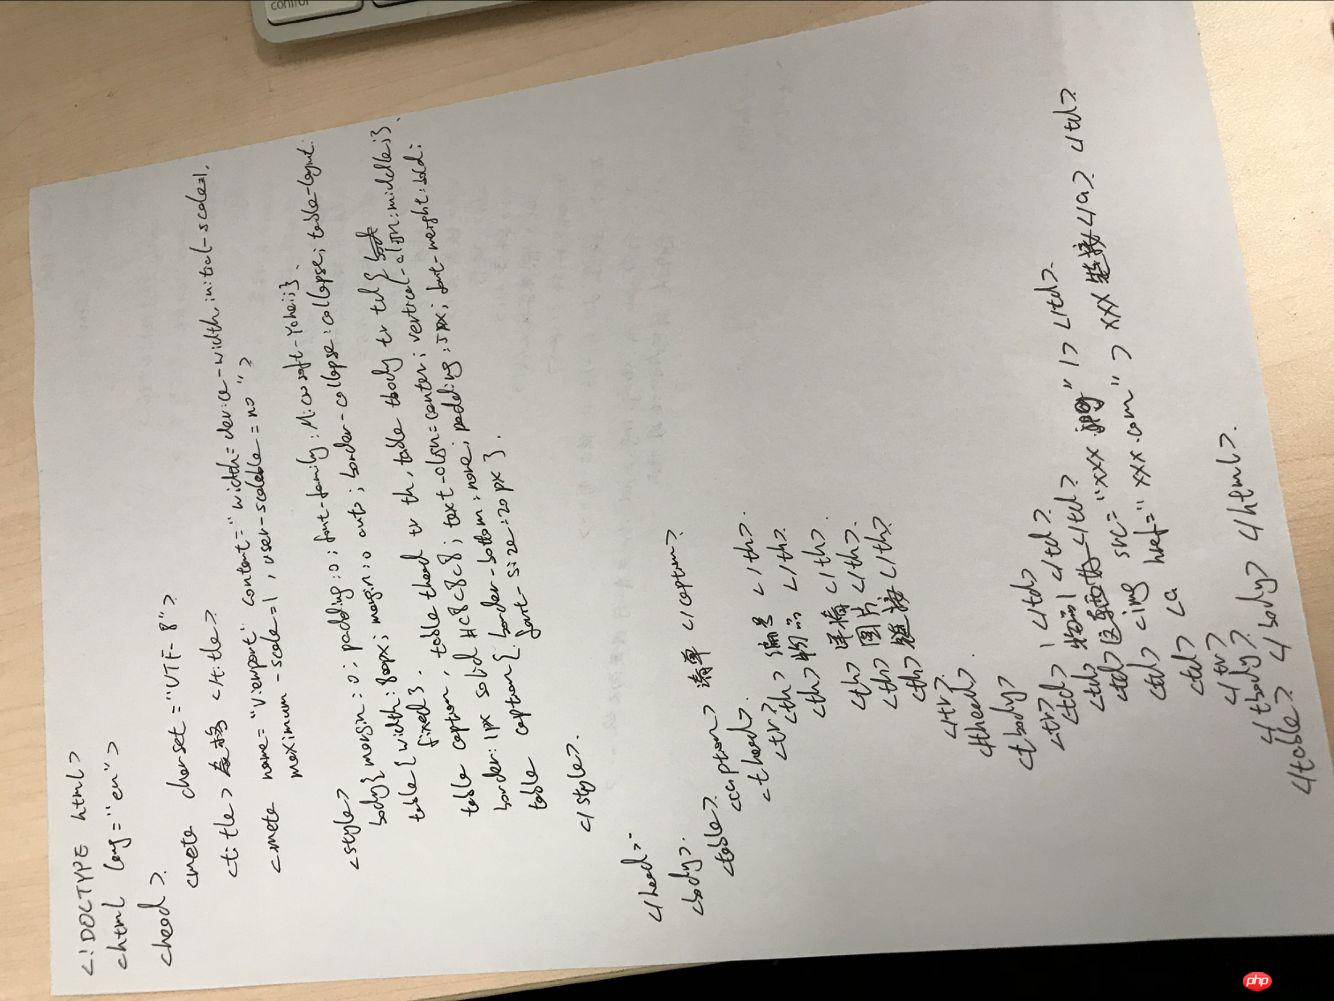 control
<!DOCTYPE html>
<html lang="en">
<head>
<meta charset="UTF-8">
<title>表格</title>
<meta name="viewport" content="width=device-width, initial-scale=1,
maximum-scale=1, user-scalable=no">
<style>
body{margin:0; padding:0; font-family:Microsoft-Yahei;}
table{width:800px; margin:0 auto; border-collapse:collapse; table-layout:
fixed}
table caption, table thead tr th, table tbody tr td{
border:1px solid #c8c8c8; text-align:center; vertical-align:middle;}
table caption{border-bottom:none; padding:5px; font-weight:bold;
font-size:20px}
</style>
</head>
<body>
<table>
<caption>清单</caption>
<thead>
<tr>
<th>编号</th>
<th>物品</th>
<th>单价</th>
<th>图片</th>
<th>链接</th>
</tr>
</thead>
<tbody>
<tr>
<td>1</td>
<td>物品1</td>
<td>这是面的</td>
<td><img src="xxx.jpg"/></td>
<td><a href="xxx.com">xxx链接</a></td>
</tr>
</tbody>
</table></body></html>
php